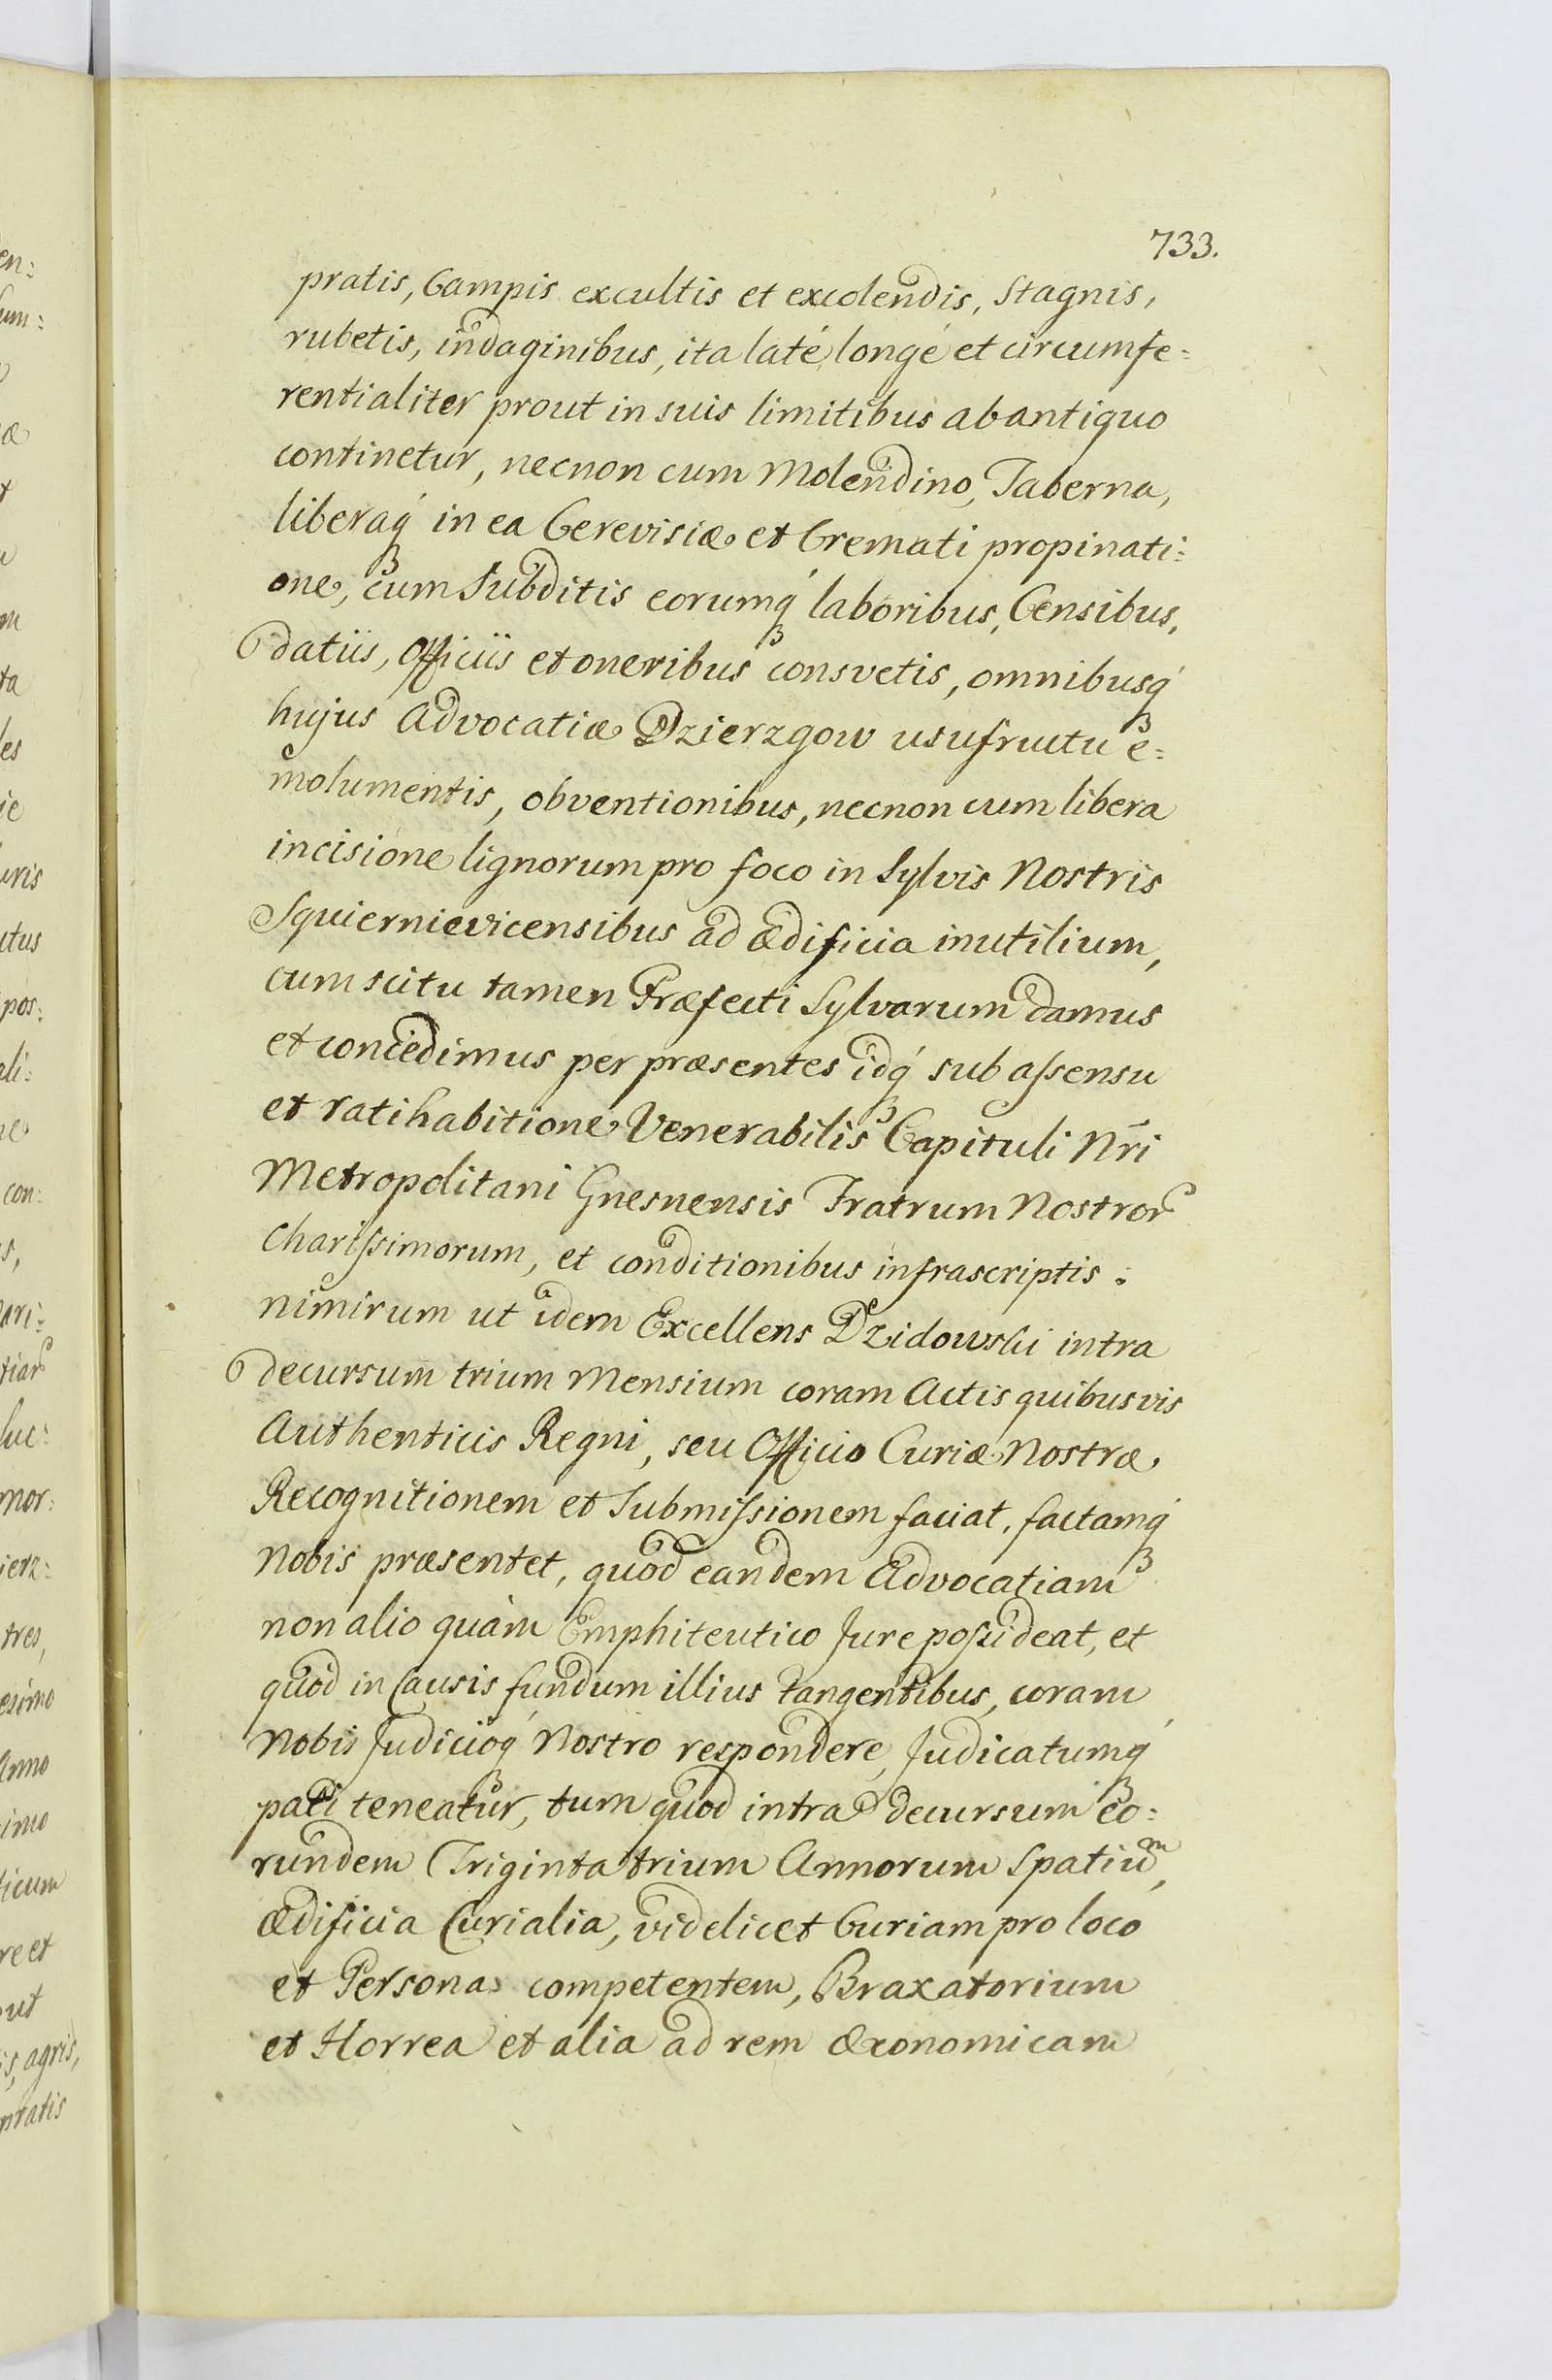 733.
pratis, Campis excultis et excolendis, Stagnis,
rubetis, indaginibus, ita laté, longé et circumfe=
rentialiter prout in suis limitibus ab antiquo
continetur, necnon cum Molendino, Taberna,
liberaq́ in ea Cerevisiæ et Cremati propinati=
one, cum Subditis eorumq́ laboribus, Censibus,
datiis, Officiis et oneribus consvetis, omnibusq́
hujus Advocatiæ Dzierzgow usufructu e=
molumentis, obventionibus, necnon cum libera
incisione lignorum pro foco in Sylvis Nostris
Squiernievicensibus ad ædificia inutilium,
cum scitu tamen Præfecti Sylvarum damus
et concedimus per præsentes idq́ sub assensu
et ratihabitione Venerabilis Capituli Nri
Metropolitani Gnesnensis Fratrum Nostror
Charissimorum, et conditionibus infrascriptis:
nimirum ut idem Excellens Dzidowski intra
decursum trium Mensium coram Actis quibusvis
Authenticis Regni, seu Officio Curiæ Nostræ
Recognitionem et Submissionem faciat, factamq́
Nobis præsentet, quod eandem Advocatiam
non alio quàm Emphiteutico Jure possideat, et
quod in Causis fundum illius tangentibus, coram
Nobis Judicioq́ Nostro respondere, Judicatumq́
pati teneatur, tum quod intra decursum eo=
rundem Triginta trium Annorum Spatiūm,
ædificia Curialia, videlicet Curiam pro loco
et Persona competentem, Braxatorium
et Horrea et alia ad rem œconomicam
en:
um:
æ
ta
les
ie
uris
utus
pos:
ali:
ne
con:
s,
ari:
tiar
luc:
mor:
ierz:
tres,
esimo
Anno
imo
ticum
re et
out
is, agris,
pratis